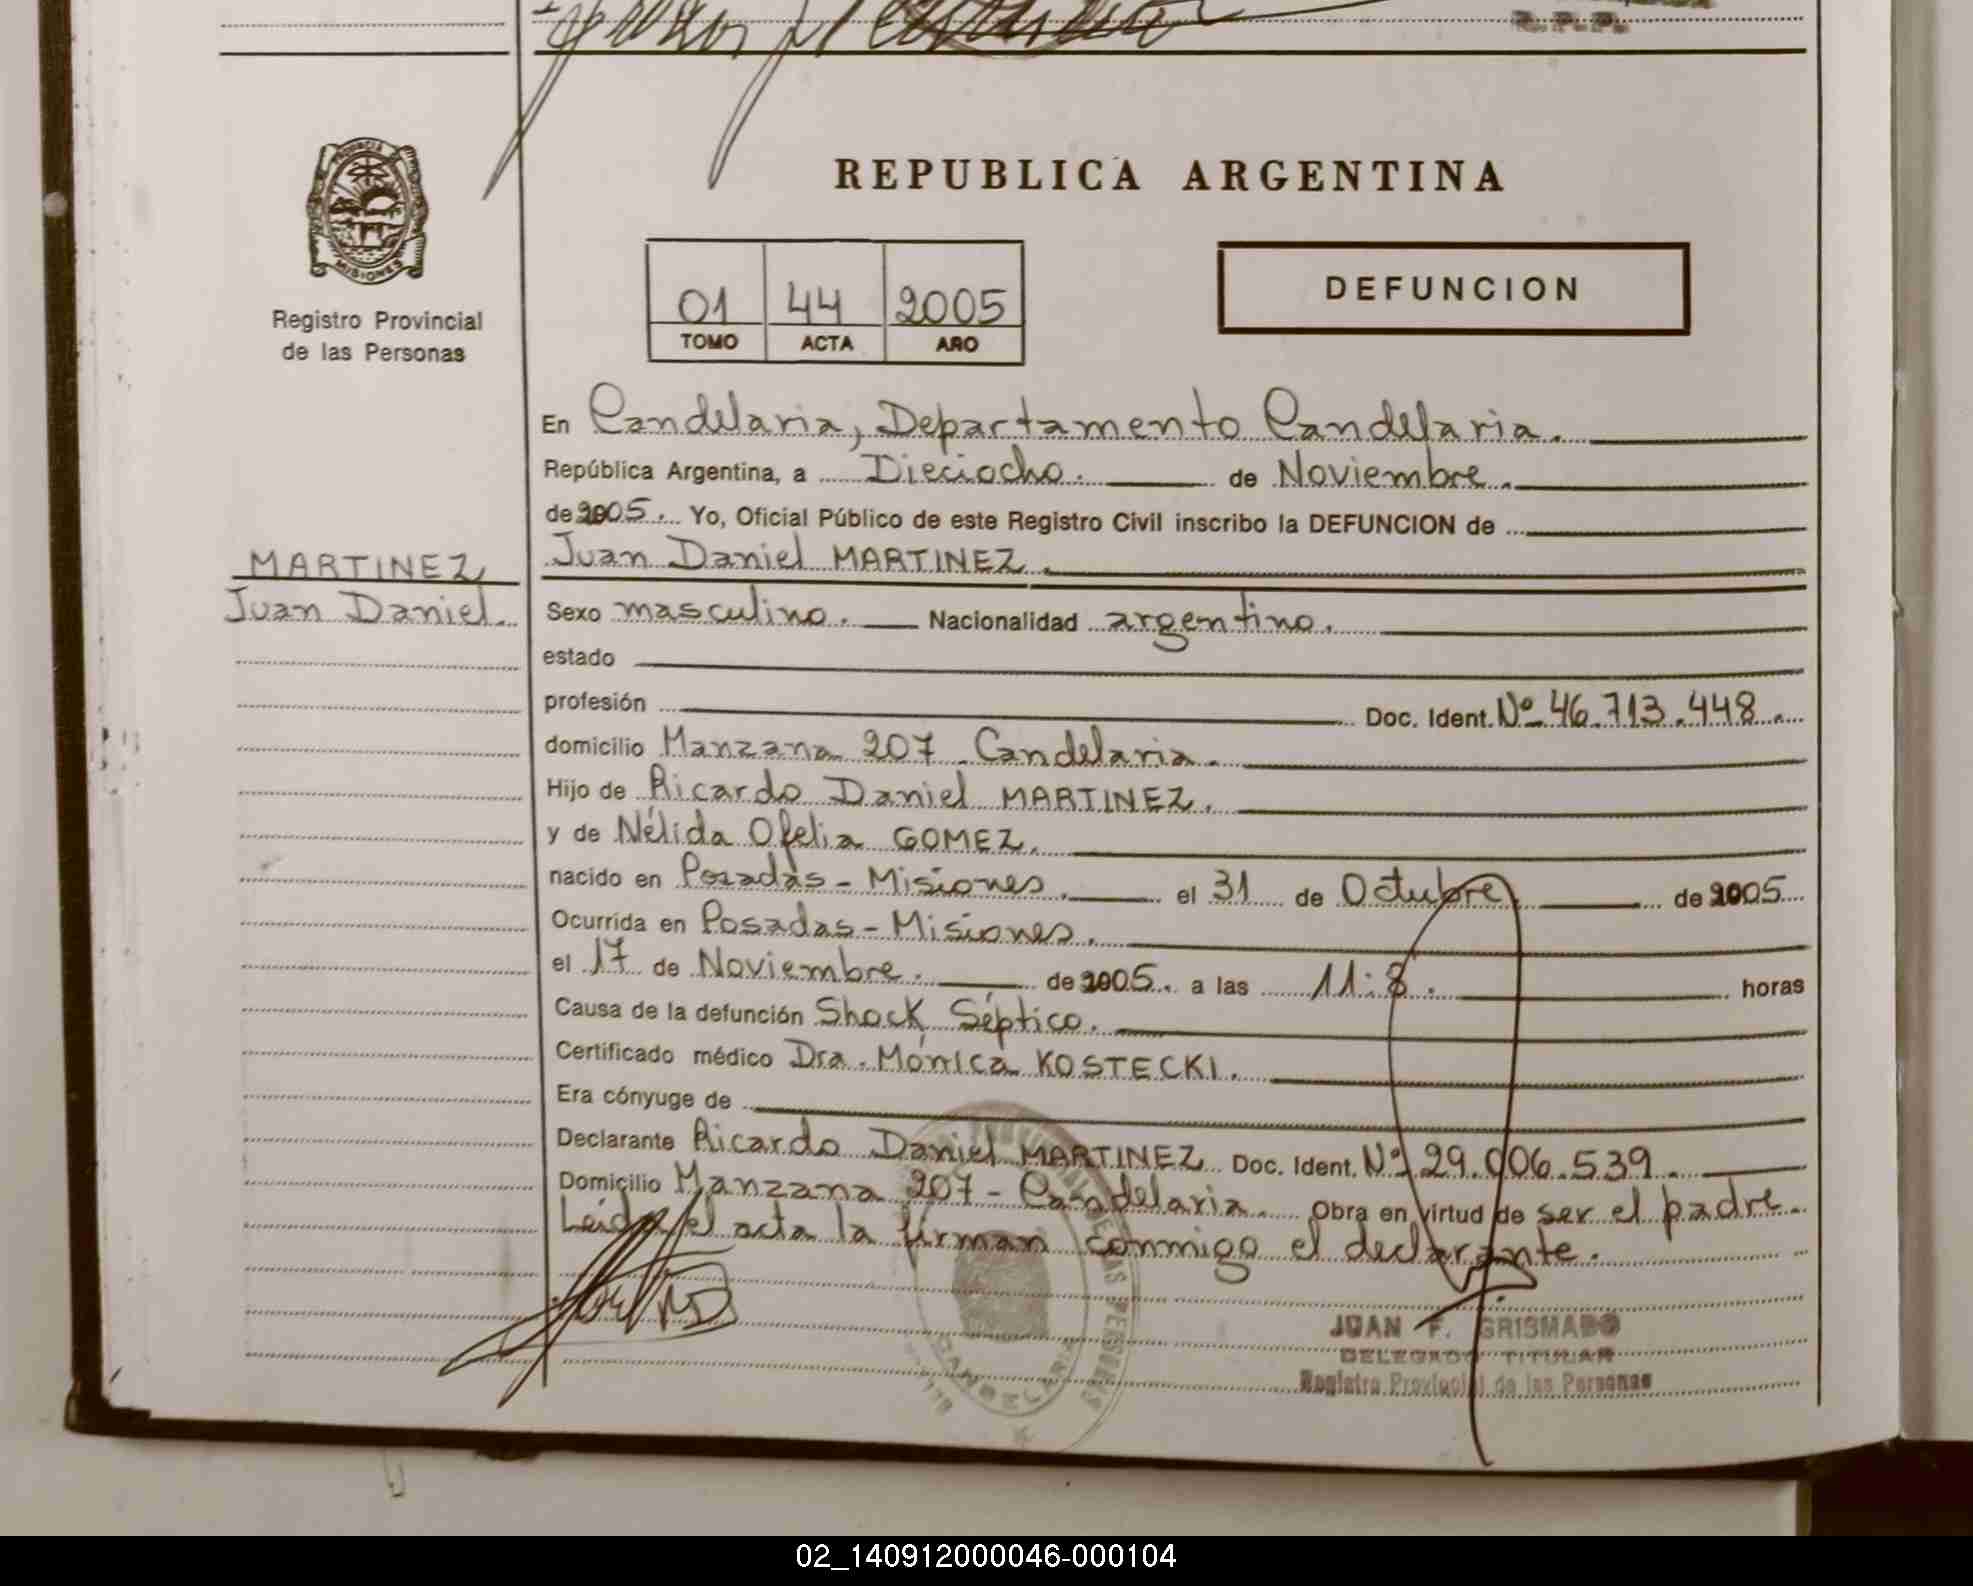 R.P.P.
PROVINCIA
MISIONES
Registro Provincial
de las Personas
REPUBLICA ARGENTINA
01 44 2005
TOMO ACTA AÑO
DEFUNCION
En Candelaria, Departamento Candelaria.
República Argentina, a Dieciocho. de Noviembre.
de 2005. Yo, Oficial Público de este Registro Civil inscribo la DEFUNCION de
MARTINEZ
Juan Daniel.
Juan Daniel MARTINEZ.
Sexo masculino. Nacionalidad argentino.
estado
profesión Doc. Ident. Nº 46.713.448.
domicilio Manzana 207 - Candelaria.
Hijo de Ricardo Daniel MARTINEZ.
y de Nélida Ofelia GOMEZ.
nacido en Posadas - Misiones. el 31 de Octubre de 2005
Ocurrida en Posadas - Misiones.
el 17 de Noviembre. de 2005. a las 11:8. horas
Causa de la defunción Shock Séptico.
Certificado médico Dra. Mónica KOSTECKI.
Era cónyuge de
Declarante Ricardo Daniel MARTINEZ Doc. Ident. Nº 29.006.539.
Domicilio Manzana 207 - Candelaria. Obra en virtud de ser el padre.
Leída el acta la firman conmigo el declarante.
CANDELARIA
JUAN F. GRISMADO
DELEGADO TITULAR
Registro Provincial de las Personas
02_140912000046-000104